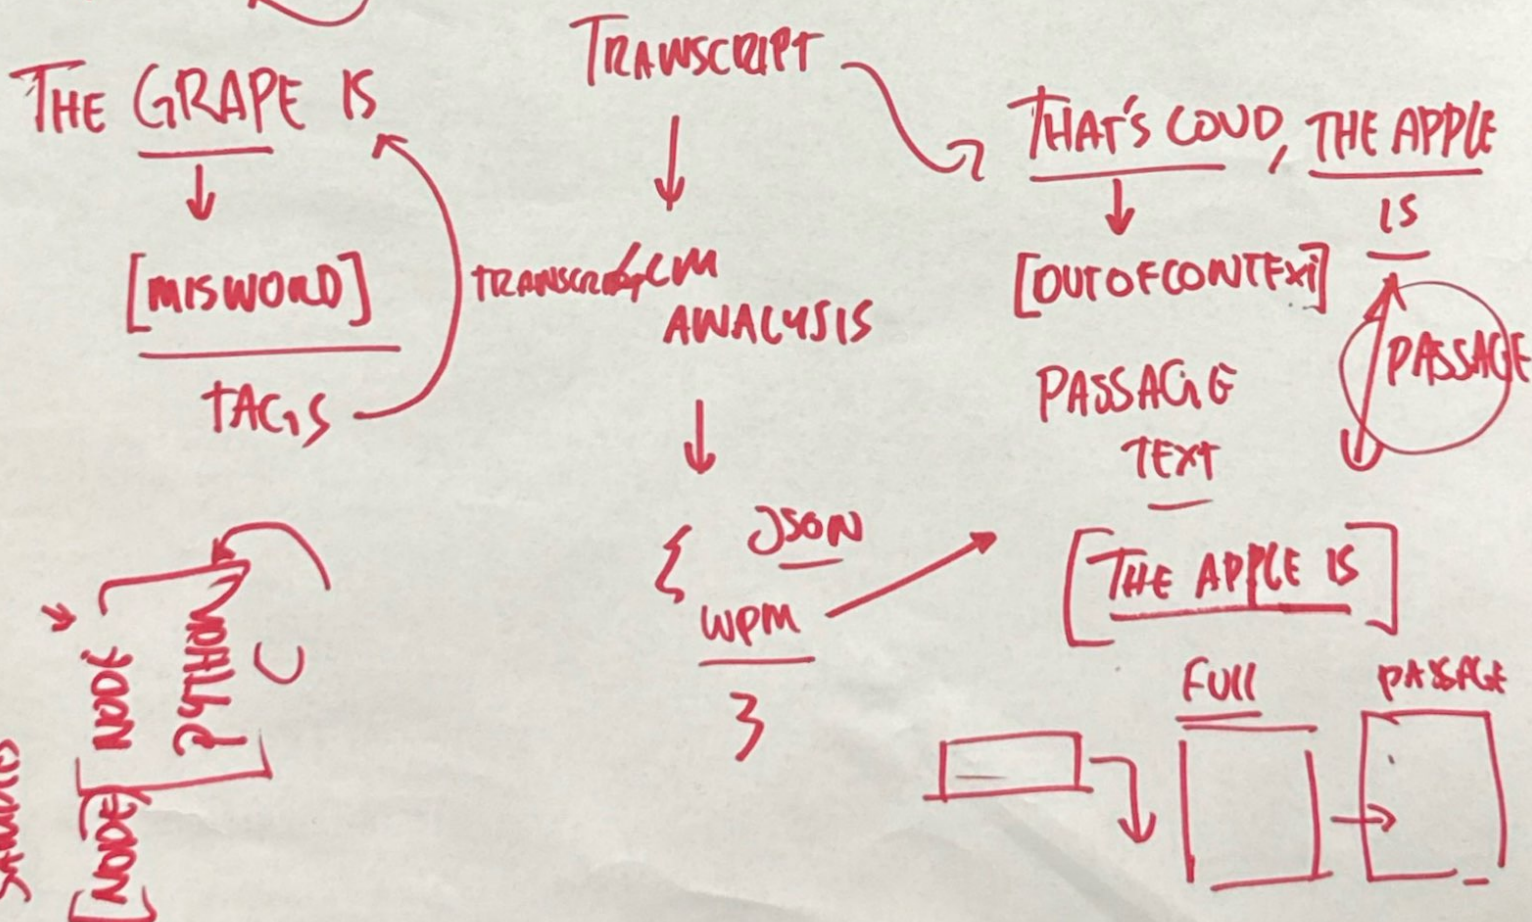 THE GRAPE IS
[MISWORD]
TAGS
TRANSCRIPT
LLM
ANALYSIS
JSON
{
WPM
}
THAT'S COLD, THE APPLE
IS
[OUTOFCONTEXT]
PASSAGE
PASSAGE
TEXT
[THE APPLE IS]
FULL
PASSAGE
NODE
PYTHON
C
[NODE]